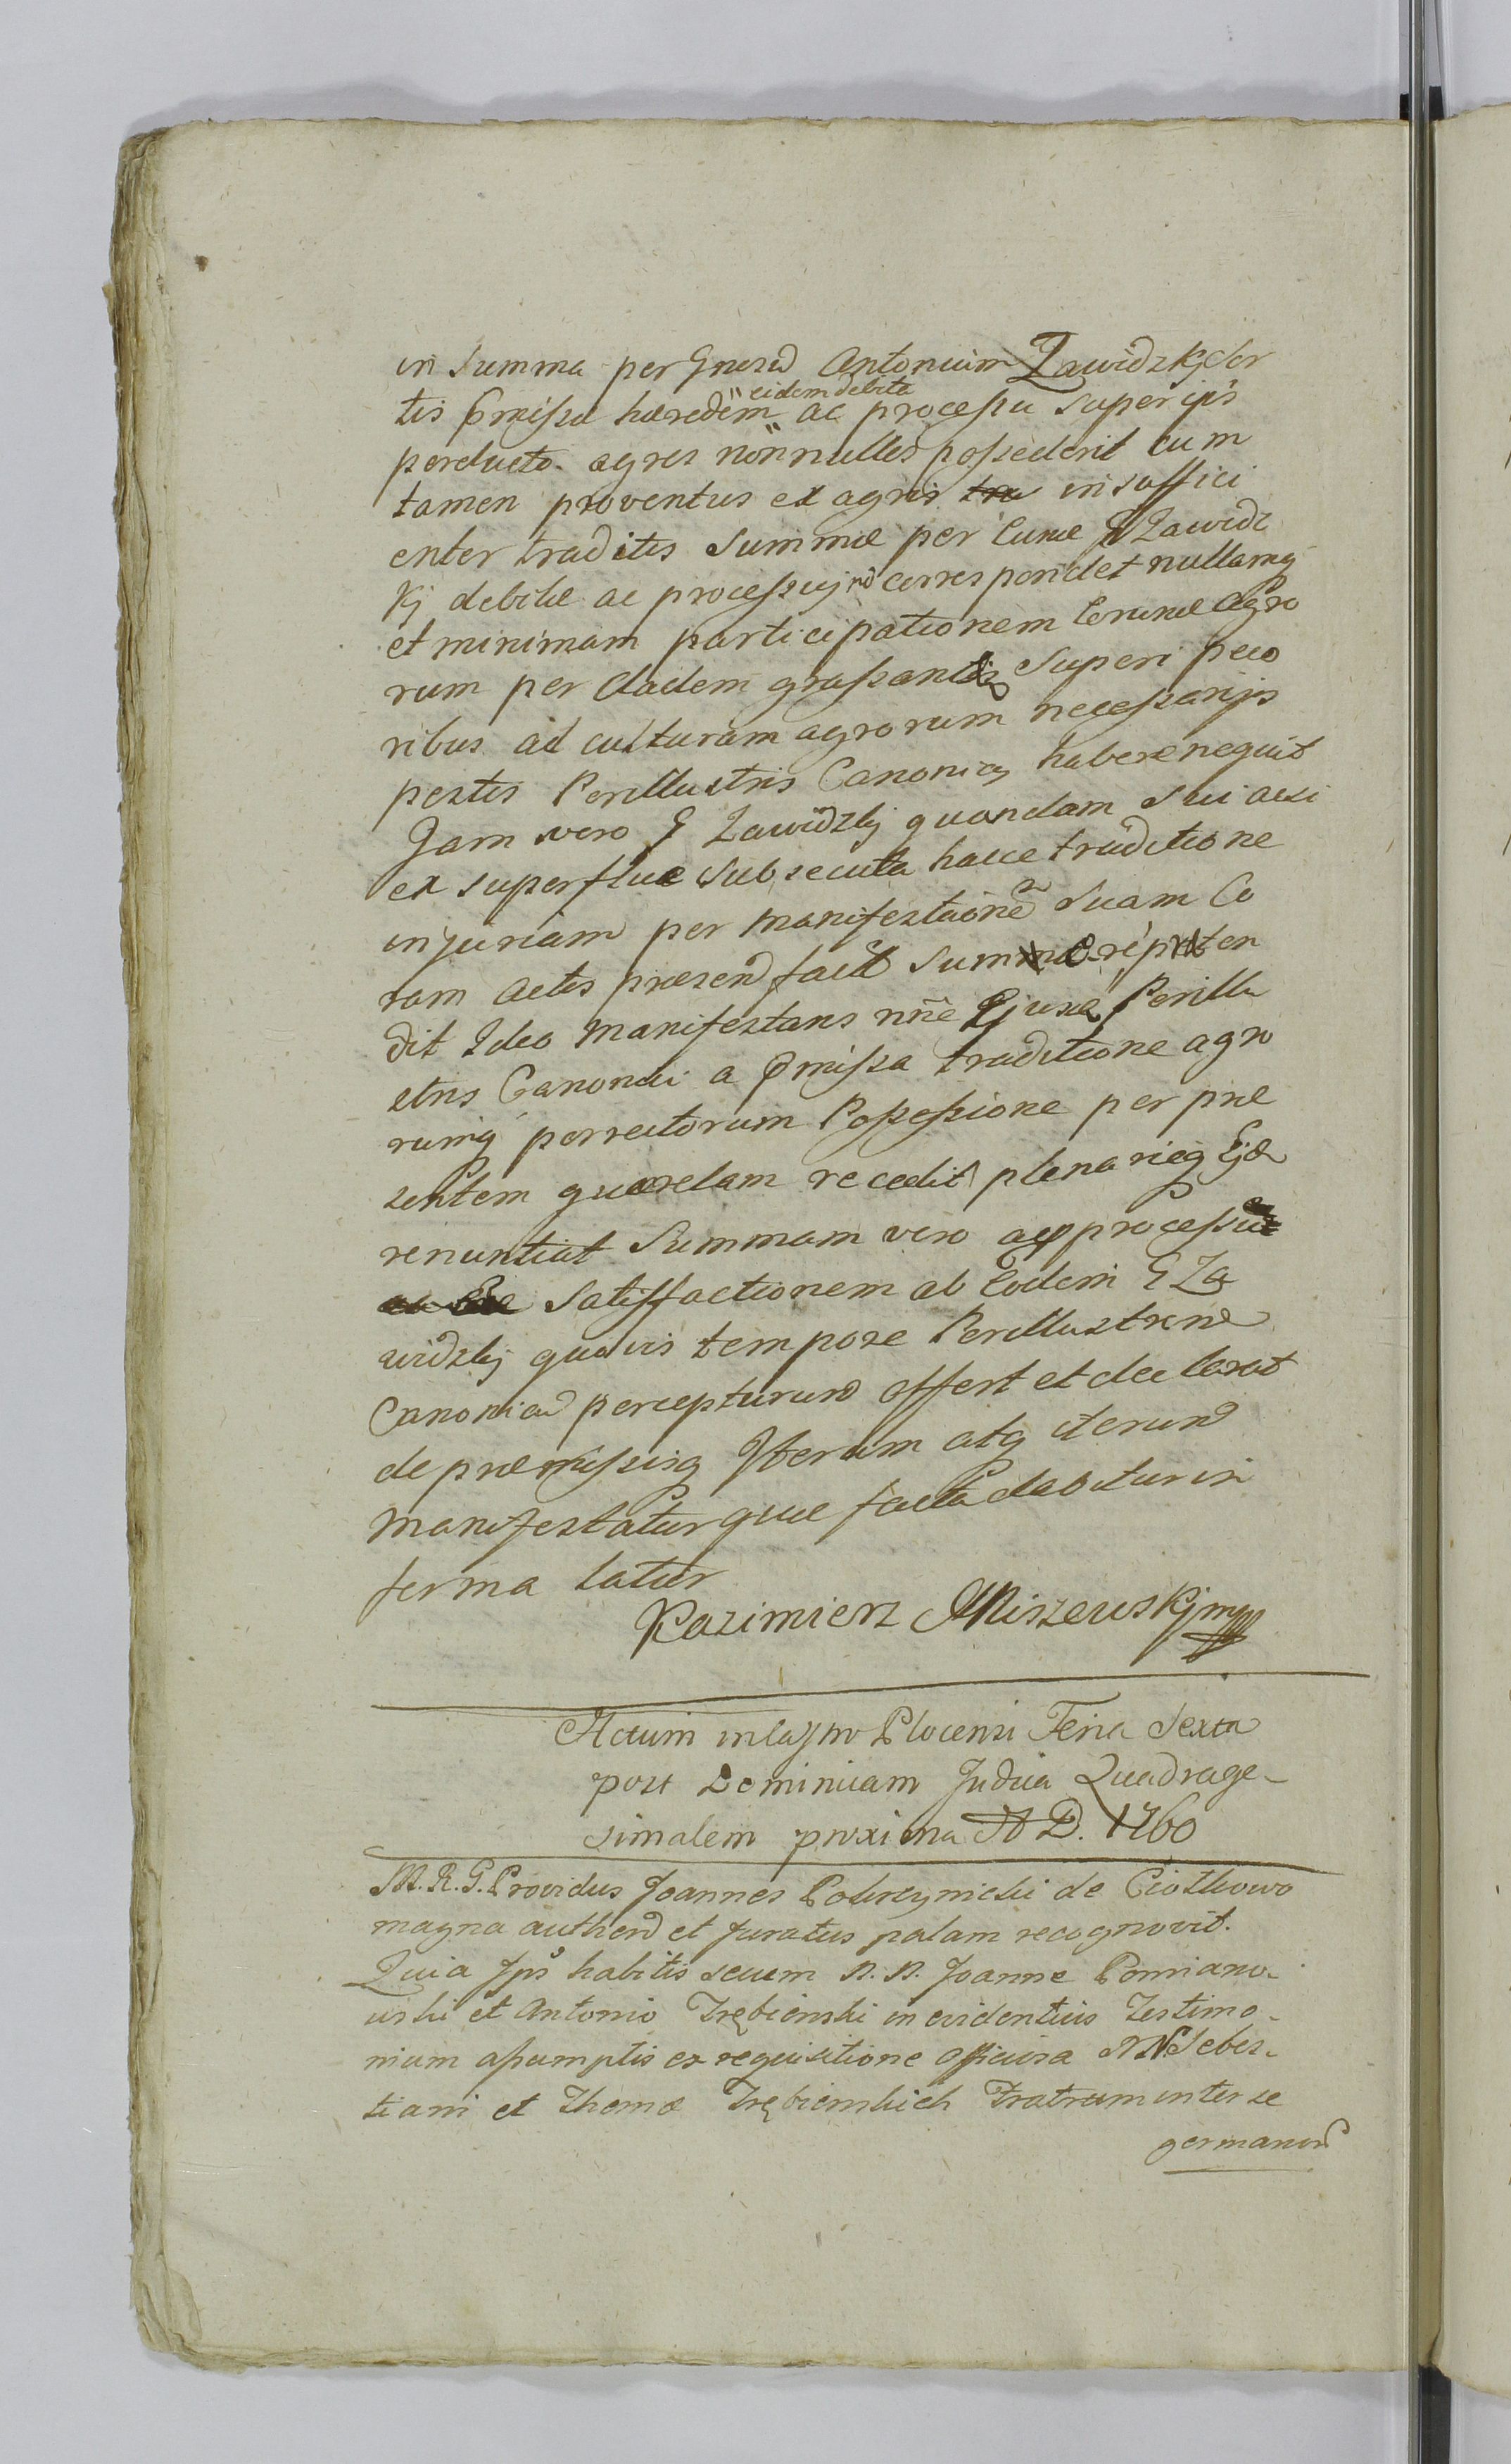 in Summa per Gnerod Antonium Zawidzkj Sor
tis pmissa haeredem ac processu super ips
eidem debita
perducto. agros nonnullos possederit cum
tamen proventus ex agris insuffici
enter traditis Summae per eund G Zawidz
kj debitae ac processuj no correspondet nullamq
et minimam participationem eorund agro
rum per cladem grassantis Superi peco
ribus ad culturam agrorum necessarijs
pestis Perillustris Canonicus habere nequit
Jam vero G Zawidzkj quandam sui acsi
ex superflue subsecuta hacce traditione
injuriam per manifestaõne suam Co
ram actis praesend fact Summae
dit Ideo manifestans nñe Ejusd Perillu
stris Canonici a pmissa traditione agro
rumq Possessione per prae
sentem quaerelam recedit plenarieq Ejd
renuntiat Summam vero ac processu
Satisfactionem ab Eodem G Za
widzkj quovis tempore Perillustrem
Canonicu percepturum offert et declarat
de praemissisq Iterum atq iterum
manifestatur quae facta debitur in
forma latius
Kazimierz Miszewskj mpp
Actum in Castro Plocensi Feria Sexta
post Dominicam Judica Quadrage-
simalem proxima A D. 1760
M. R. G. Providus Joannes Pokrzynicki de Ciołkowo
magna authend et Juratus palam recognovit.
Quia Ips habitis secum N. N. Joanne Pomiano-
wski et Antonio Trębienski in evidentius Testimo-
nium assumptis ex requisitione officiosa N N. Sebes-
tiani et Thomae Trębienskich Fratrum inter se
germanord